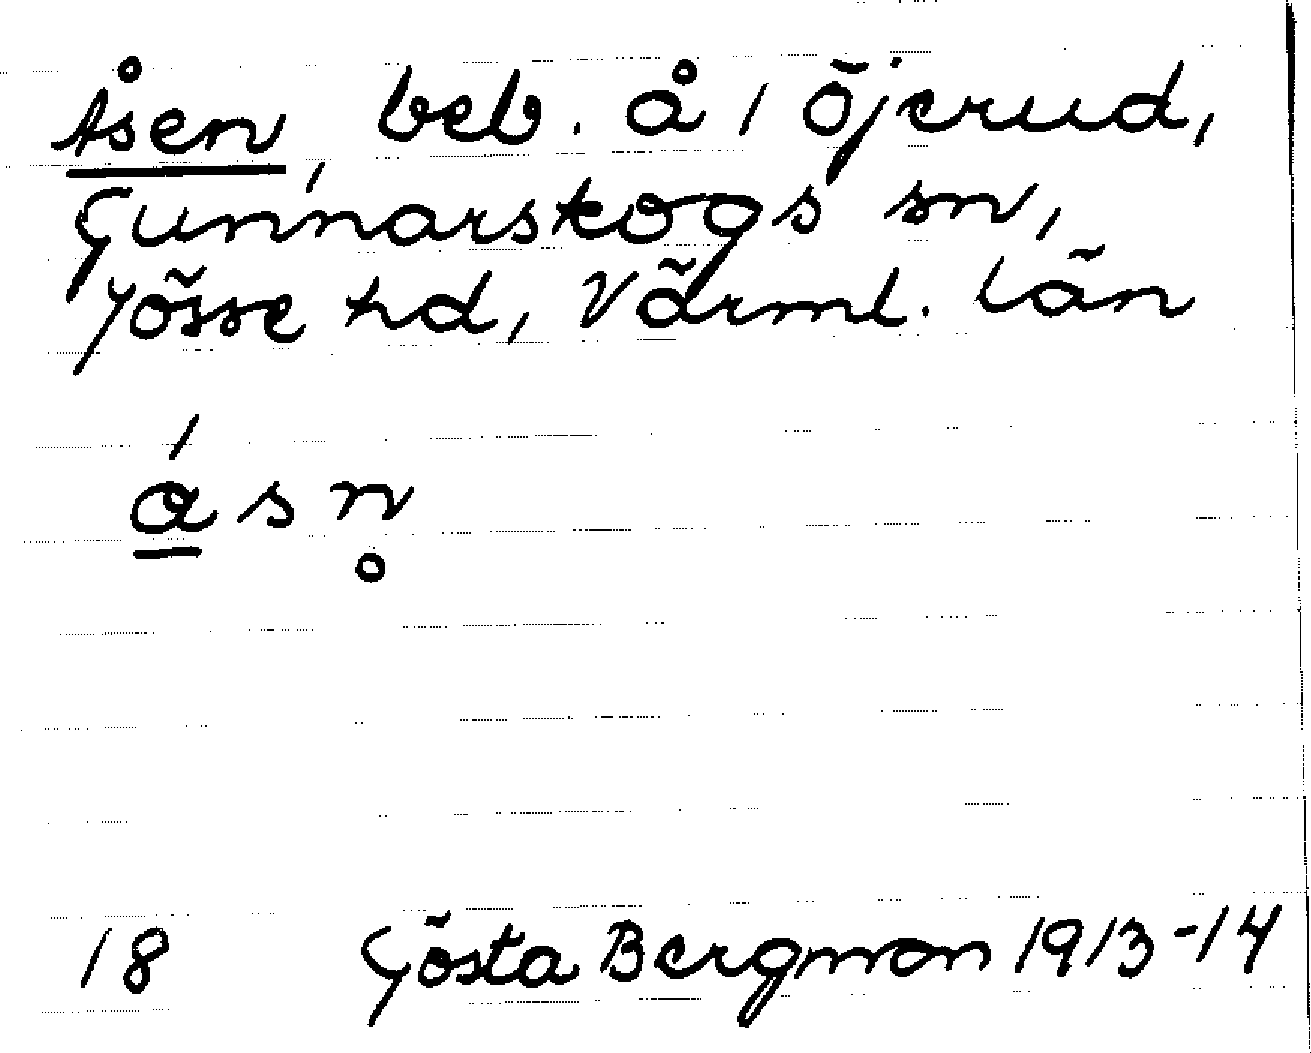 Åsen, beb. å 1 Öjerud,
Gunnarskogs sn,
Jösse hd, Värml. län
á̱ s n̥
18 Gösta Bergman 1913-14